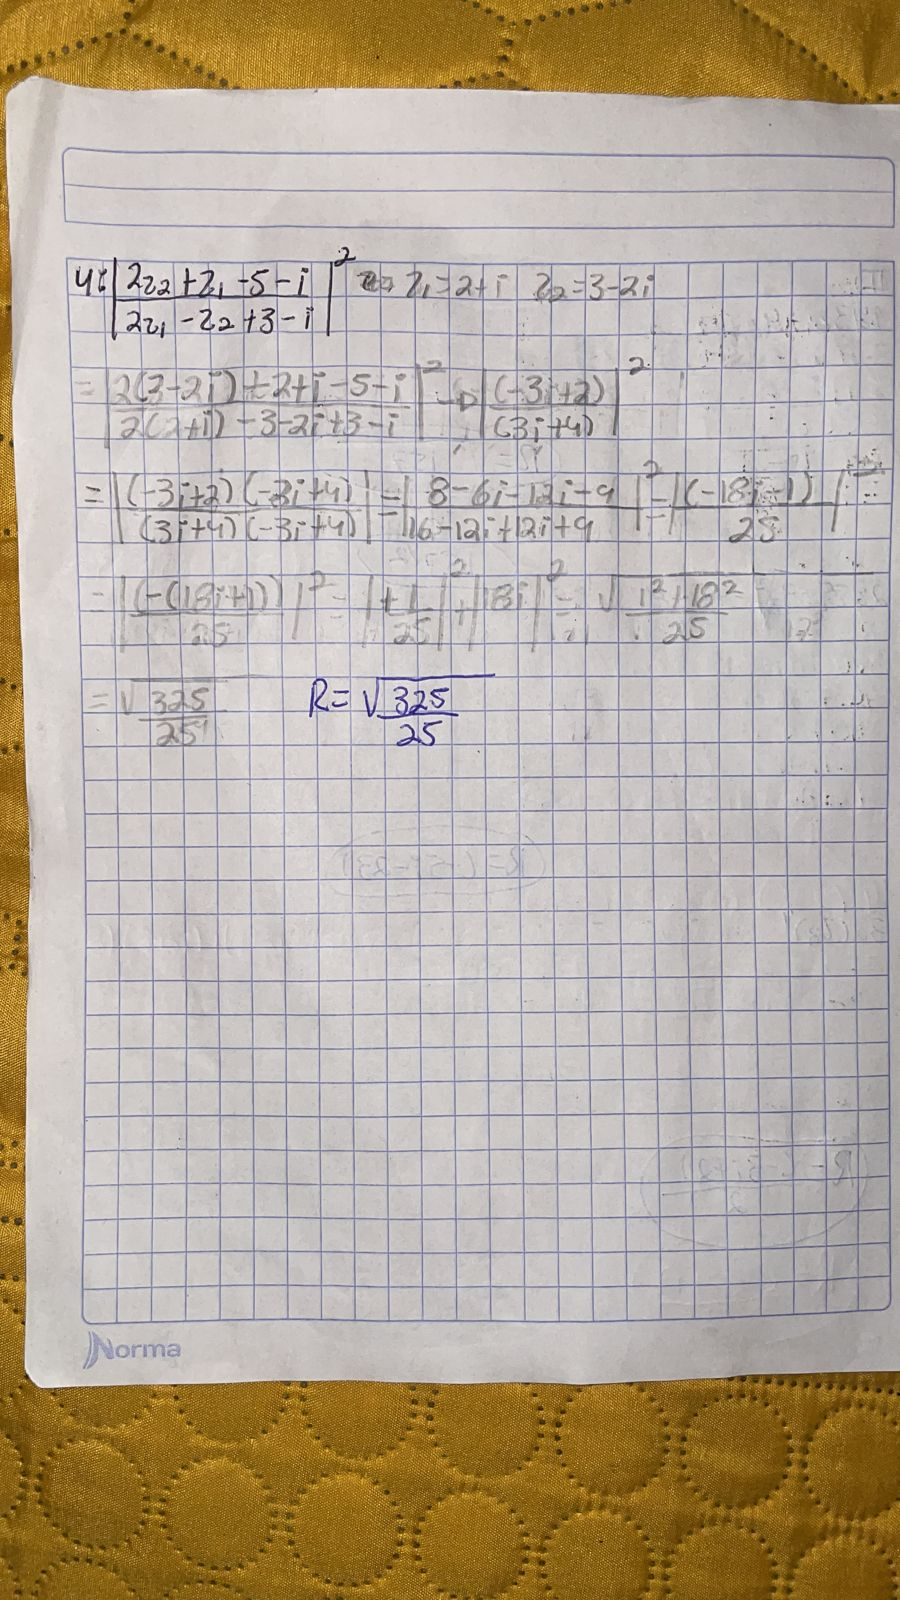 4: |2z₂ + z₁ - 5 - i / 2z₁ - z₂ + 3 - i|² z₁ = 2 + i z₂ = 3 - 2i
= |2(3-2i) + 2 + i - 5 - i / 2(2+i) - 3 - 2i + 3 - i|² → |(-3i+2) / (3i+4)|²
= |(-3i+2)(-3i+4) / (3i+4)(-3i+4)| = |8 - 6i - 12i - 9 / 16 - 12i + 12i + 9|² = |(-18i - 1) / 25|²
= |(-(18i+1)) / 25|² = |+1 / 25|² + |18i|² = √(1² + 18² / 25)
= √(325 / 25) R = √(325 / 25)
Norma